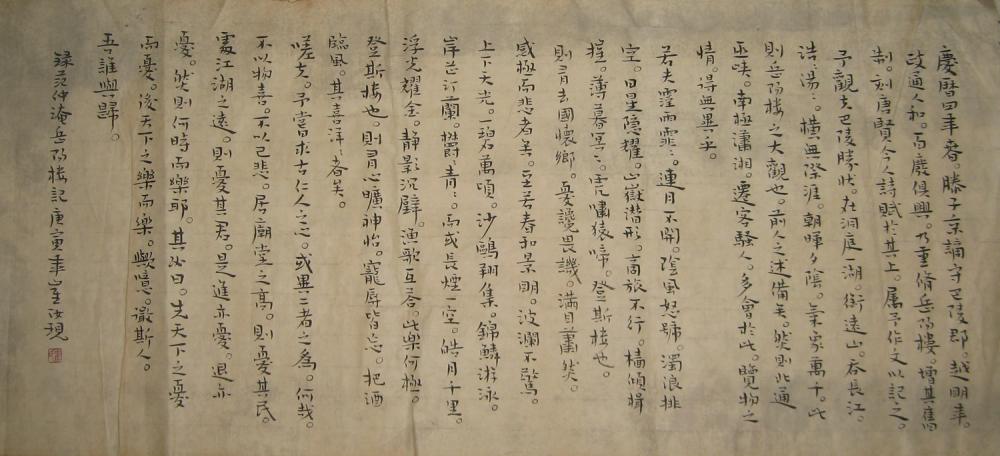 慶曆四年春。滕子京謫守巴陵郡。越明年。
政通人和。百廢俱興。乃重修岳陽樓。增其舊
制。刻唐賢今人詩賦於其上。属予作文以記之。
予觀夫巴陵勝狀。在洞庭一湖。銜遠山。吞長江。
浩浩湯湯。橫無際涯。朝暉夕陰。氣象萬千。此
則岳陽樓之大觀也。前人之述備矣。然則北通
巫峽。南極瀟湘。遷客騷人。多會於此。覽物之
情。得無異乎。
若夫霪雨霏霏。連月不開。陰風怒號。濁浪排
空。日星隱耀。山嶽潛形。商旅不行。檣傾楫
摧。薄暮冥冥。虎嘯猿啼。登斯樓也。
則有去國懷鄉。憂讒畏譏。滿目蕭然。
感極而悲者矣。至若春和景明。波瀾不驚。
上下天光。一碧萬頃。沙鷗翔集。錦鱗游泳。
岸芷汀蘭。欝欝青青。而或長煙一空。皓月千里。
浮光耀金。靜影沉璧。漁歌互答。此樂何極。
登斯樓也。則有心曠神怡。寵辱皆忘。把酒
臨風。其喜洋洋者矣。
嗟夫。予嘗求古仁人之心。或異二者之為。何哉。
不以物喜。不以己悲。居廟堂之高。則憂其民。
處江湖之遠。則憂其君。是進亦憂。退亦
憂。然則何時而樂耶。其必曰。先天下之憂
而憂。後天下之樂而樂。歟噫。微斯人。
吾誰與歸。
錄范仲淹岳陽樓記庚寅年 汝現